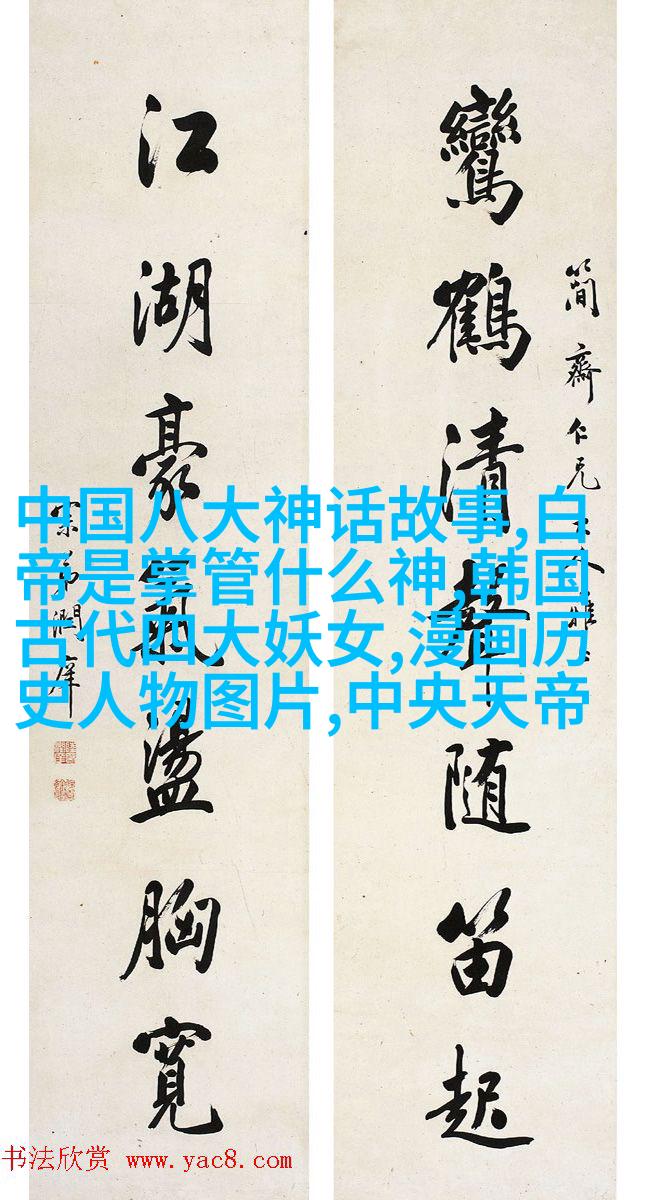 簡齋仁兄大人雅
鸞鶴清聲随笛起
江湖豪氣盪胸寬
宗弟潤庠
中国八大神话故事,白
帝是掌管什么神,韩国
古代四大妖女,漫画历
史人物图片,中央天帝
书法欣赏 www.yac8.com